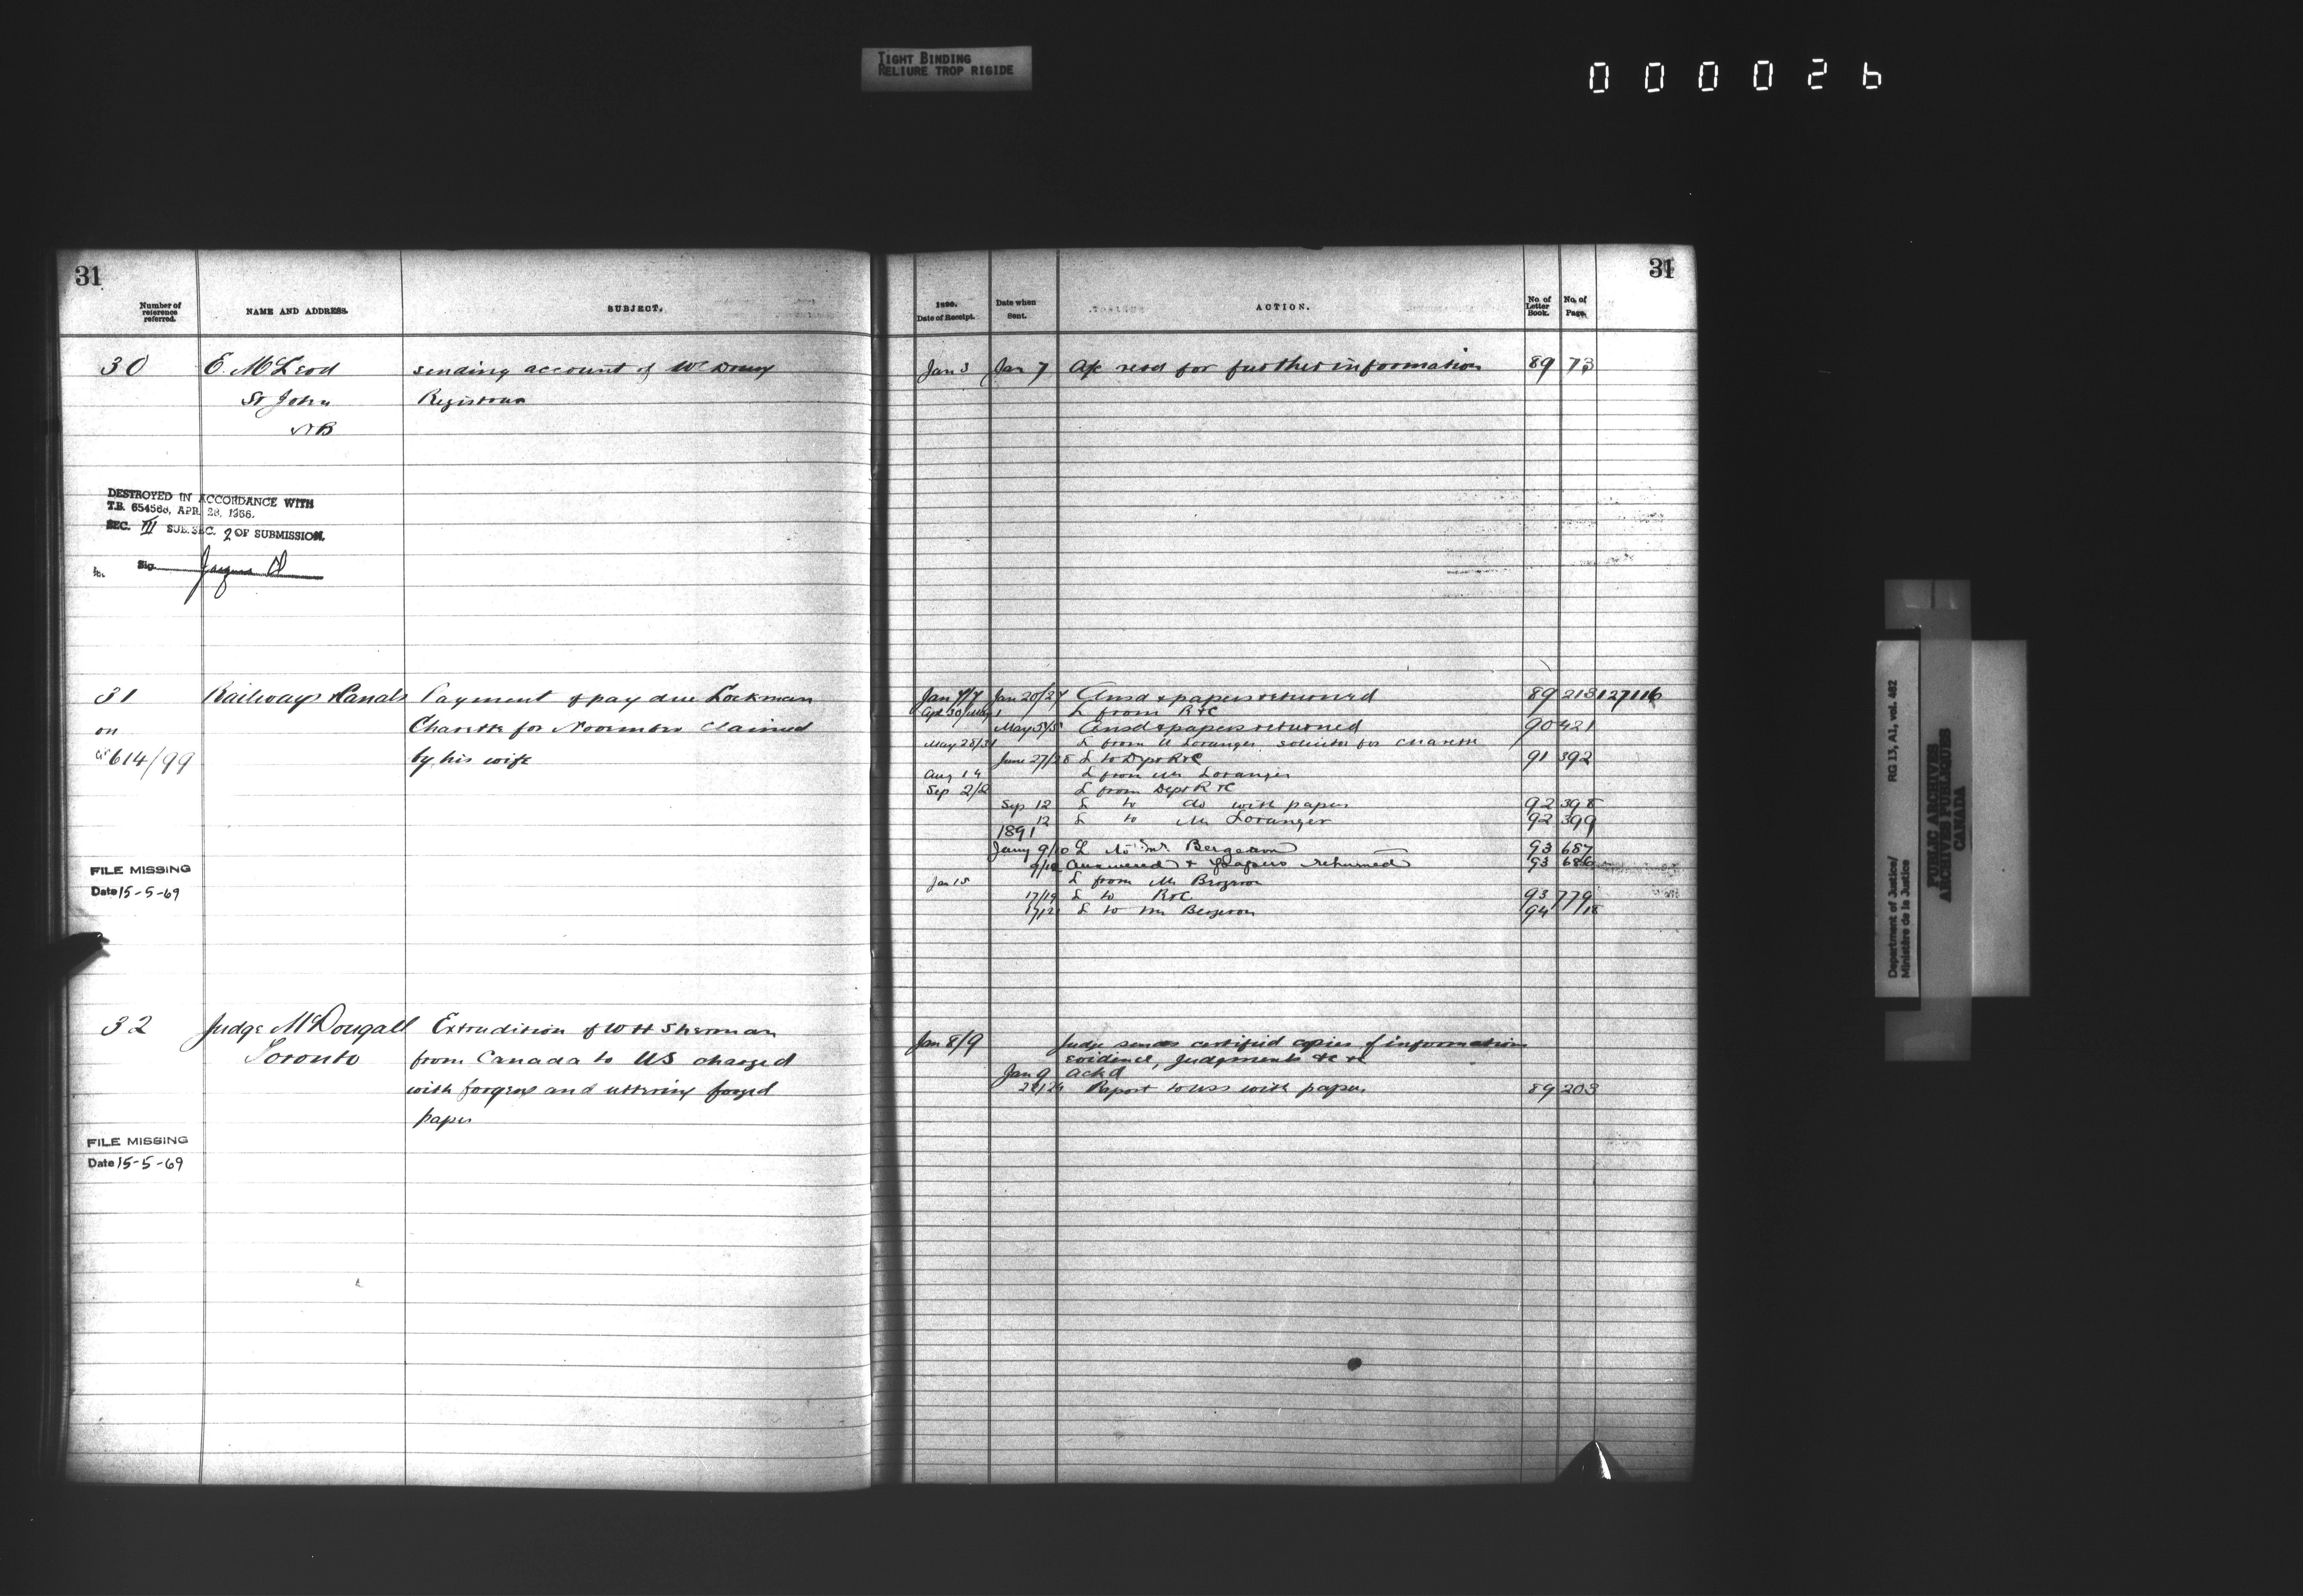 TIGHT BINDING
RELIURE TROP RIGIDE
000026
31
Number of reference referred.
NAME AND ADDRESS.
SUBJECT.
30 E. McLeod sending account of
St John Registrar
NB
DESTROYED IN ACCORDANCE WITH
T.B. 654568, APR. 26, 1966.
SEC. VII SUB. SEC. 2 OF SUBMISSION.
Sig.
31 Railways & Canals Payment of pay due Lockman
on Charette for November claimed
614/99 by his wife
FILE MISSING
Date 15-5-69
32 Judge McDougall Extradition of W H Sherman
Toronto from Canada to US charged
with forgery and uttering forged
paper
FILE MISSING
Date 15-5-69
31
1890.
Date of Receipt.
Date when Sent.
ACTION.
No. of Letter Book.
No. of Page.
Jan 3 Jan 7 A/c retd for further information 89 73
Jan 7/7 Jan 20/27 Ansd & papers returned 89 213 127116
Apl 30/May 1 L from R & C
May 5/5 Ansd & papers returned 90 421
May 28/31 L from Loranger solicitor for Charette
June 27/28 L to Dept R & C 91 392
Aug 14 L from Mr Loranger
Sep 2/2 L from Dept R & C
Sep 12 L to do with papers 92 398
12 L to Mr Loranger 92 399
1891
Jany 9/10 L to Mr Bergeron 93 687
9/12 Answered & papers returned 93 686
Jan 15 L from Mr Bergeron
17/19 L to R & C 93 779
L to Mr Bergeron 94
Jan 8/9 Judge sends certified copies of information
evidence, Judgments &c &c
Jan 9 Ackd
Report to USS with papers 89 203
Department of Justice/
Ministère de la Justice
RG 13, A1, vol. 462
PUBLIC ARCHIVES
ARCHIVES PUBLIQUES
CANADA